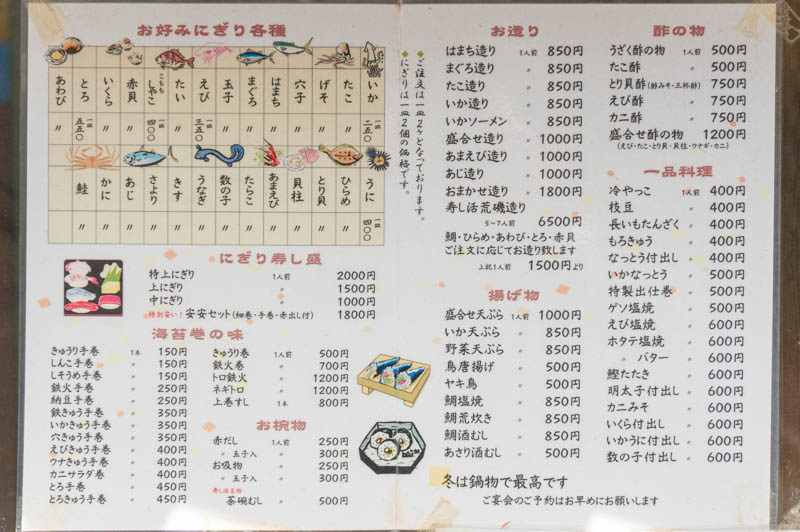 お好みにぎり各種
いか 一皿 二五〇
たこ 〃
げそ 〃
穴子 〃
はまち 〃
まぐろ 〃
玉子 〃
えび 一皿 三五〇
たい 〃
こもちしゃこ 一皿 四〇〇
赤貝 〃
いくら 〃
とろ 一皿 五五〇
あわび 〃
うに 一皿 四〇〇
ひらめ 〃
とり貝 〃
貝柱 〃
あまえび 〃
たらこ 〃
数の子 〃
うなぎ 〃
きす 〃
さより 〃
あじ 〃
かに 〃
鮭 〃
♦ご注文は一皿2ヶとなっております。
♦にぎりは一皿2個の価格です。
にぎり寿し盛
特上にぎり 1人前 2000円
上にぎり 〃 1500円
中にぎり 〃 1000円
特別安い! 安安セット(細巻・手巻・赤出し付) 1800円
海苔巻の味
きゅうり手巻 1本 150円
しんこ手巻 〃 150円
しそうめ手巻 〃 150円
鉄火手巻 〃 250円
納豆手巻 〃 250円
鉄きゅう手巻 〃 350円
いかきゅう手巻 〃 350円
穴きゅう手巻 〃 350円
えびきゅう手巻 〃 450円
ウナきゅう手巻 〃 450円
カニサラダ巻 〃 450円
とろ手巻 〃 450円
とろきゅう手巻 〃 450円
きゅうり巻 1人前 500円
鉄火巻 〃 700円
トロ鉄火 〃 1200円
ネギトロ 〃 1200円
上巻すし 1本 800円
お椀物
赤だし 1人前 250円
〃 玉子入 〃 300円
お吸物 〃 250円
〃 玉子入 〃 300円
寿し活名物
茶碗むし 〃 500円
お造り
はまち造り 1人前 850円
まぐろ造り 〃 850円
たこ造り 〃 850円
いか造り 〃 850円
いかソーメン 〃 850円
盛合せ造り 〃 1000円
あまえび造り 〃 1000円
あじ造り 〃 1000円
おまかせ造り 〃 1800円
寿し活荒磯造り
5~7人前 6500円
鯛・ひらめ・あわび・とろ・赤貝
ご注文に応じてお造り致します
上記1人前 1500円より
揚げ物
盛合せ天ぷら 1人前 1000円
いか天ぷら 〃 850円
野菜天ぷら 〃 850円
鳥唐揚げ 〃 500円
ヤキ鳥 〃 500円
鯛塩焼 〃 850円
鯛荒炊き 〃 850円
鯛酒むし 〃 850円
あさり酒むし 〃 500円
酢の物
うざく酢の物 1人前 500円
たこ酢 〃 500円
とり貝酢(酢みそ・三杯酢) 750円
えび酢 〃 750円
カニ酢 〃 750円
盛合せ酢の物 〃 1200円
(えび・たこ・とり貝・貝柱・ウナギ・カニ)
一品料理
冷やっこ 1人前 400円
枝豆 〃 400円
長いもたんざく 〃 400円
もろきゅう 〃 400円
なっとう付出し 〃 400円
いかなっとう 〃 500円
特製出仕巻 〃 500円
ゲソ塩焼 〃 500円
えび塩焼 〃 600円
ホタテ塩焼 〃 600円
〃 バター 〃 600円
鰹たたき 〃 600円
明太子付出し 〃 600円
カニみそ 〃 600円
いくら付出し 〃 600円
いかうに付出し 〃 600円
数の子付出し 〃 600円
冬は鍋物で最高です
ご宴会のご予約はお早めにお願いします